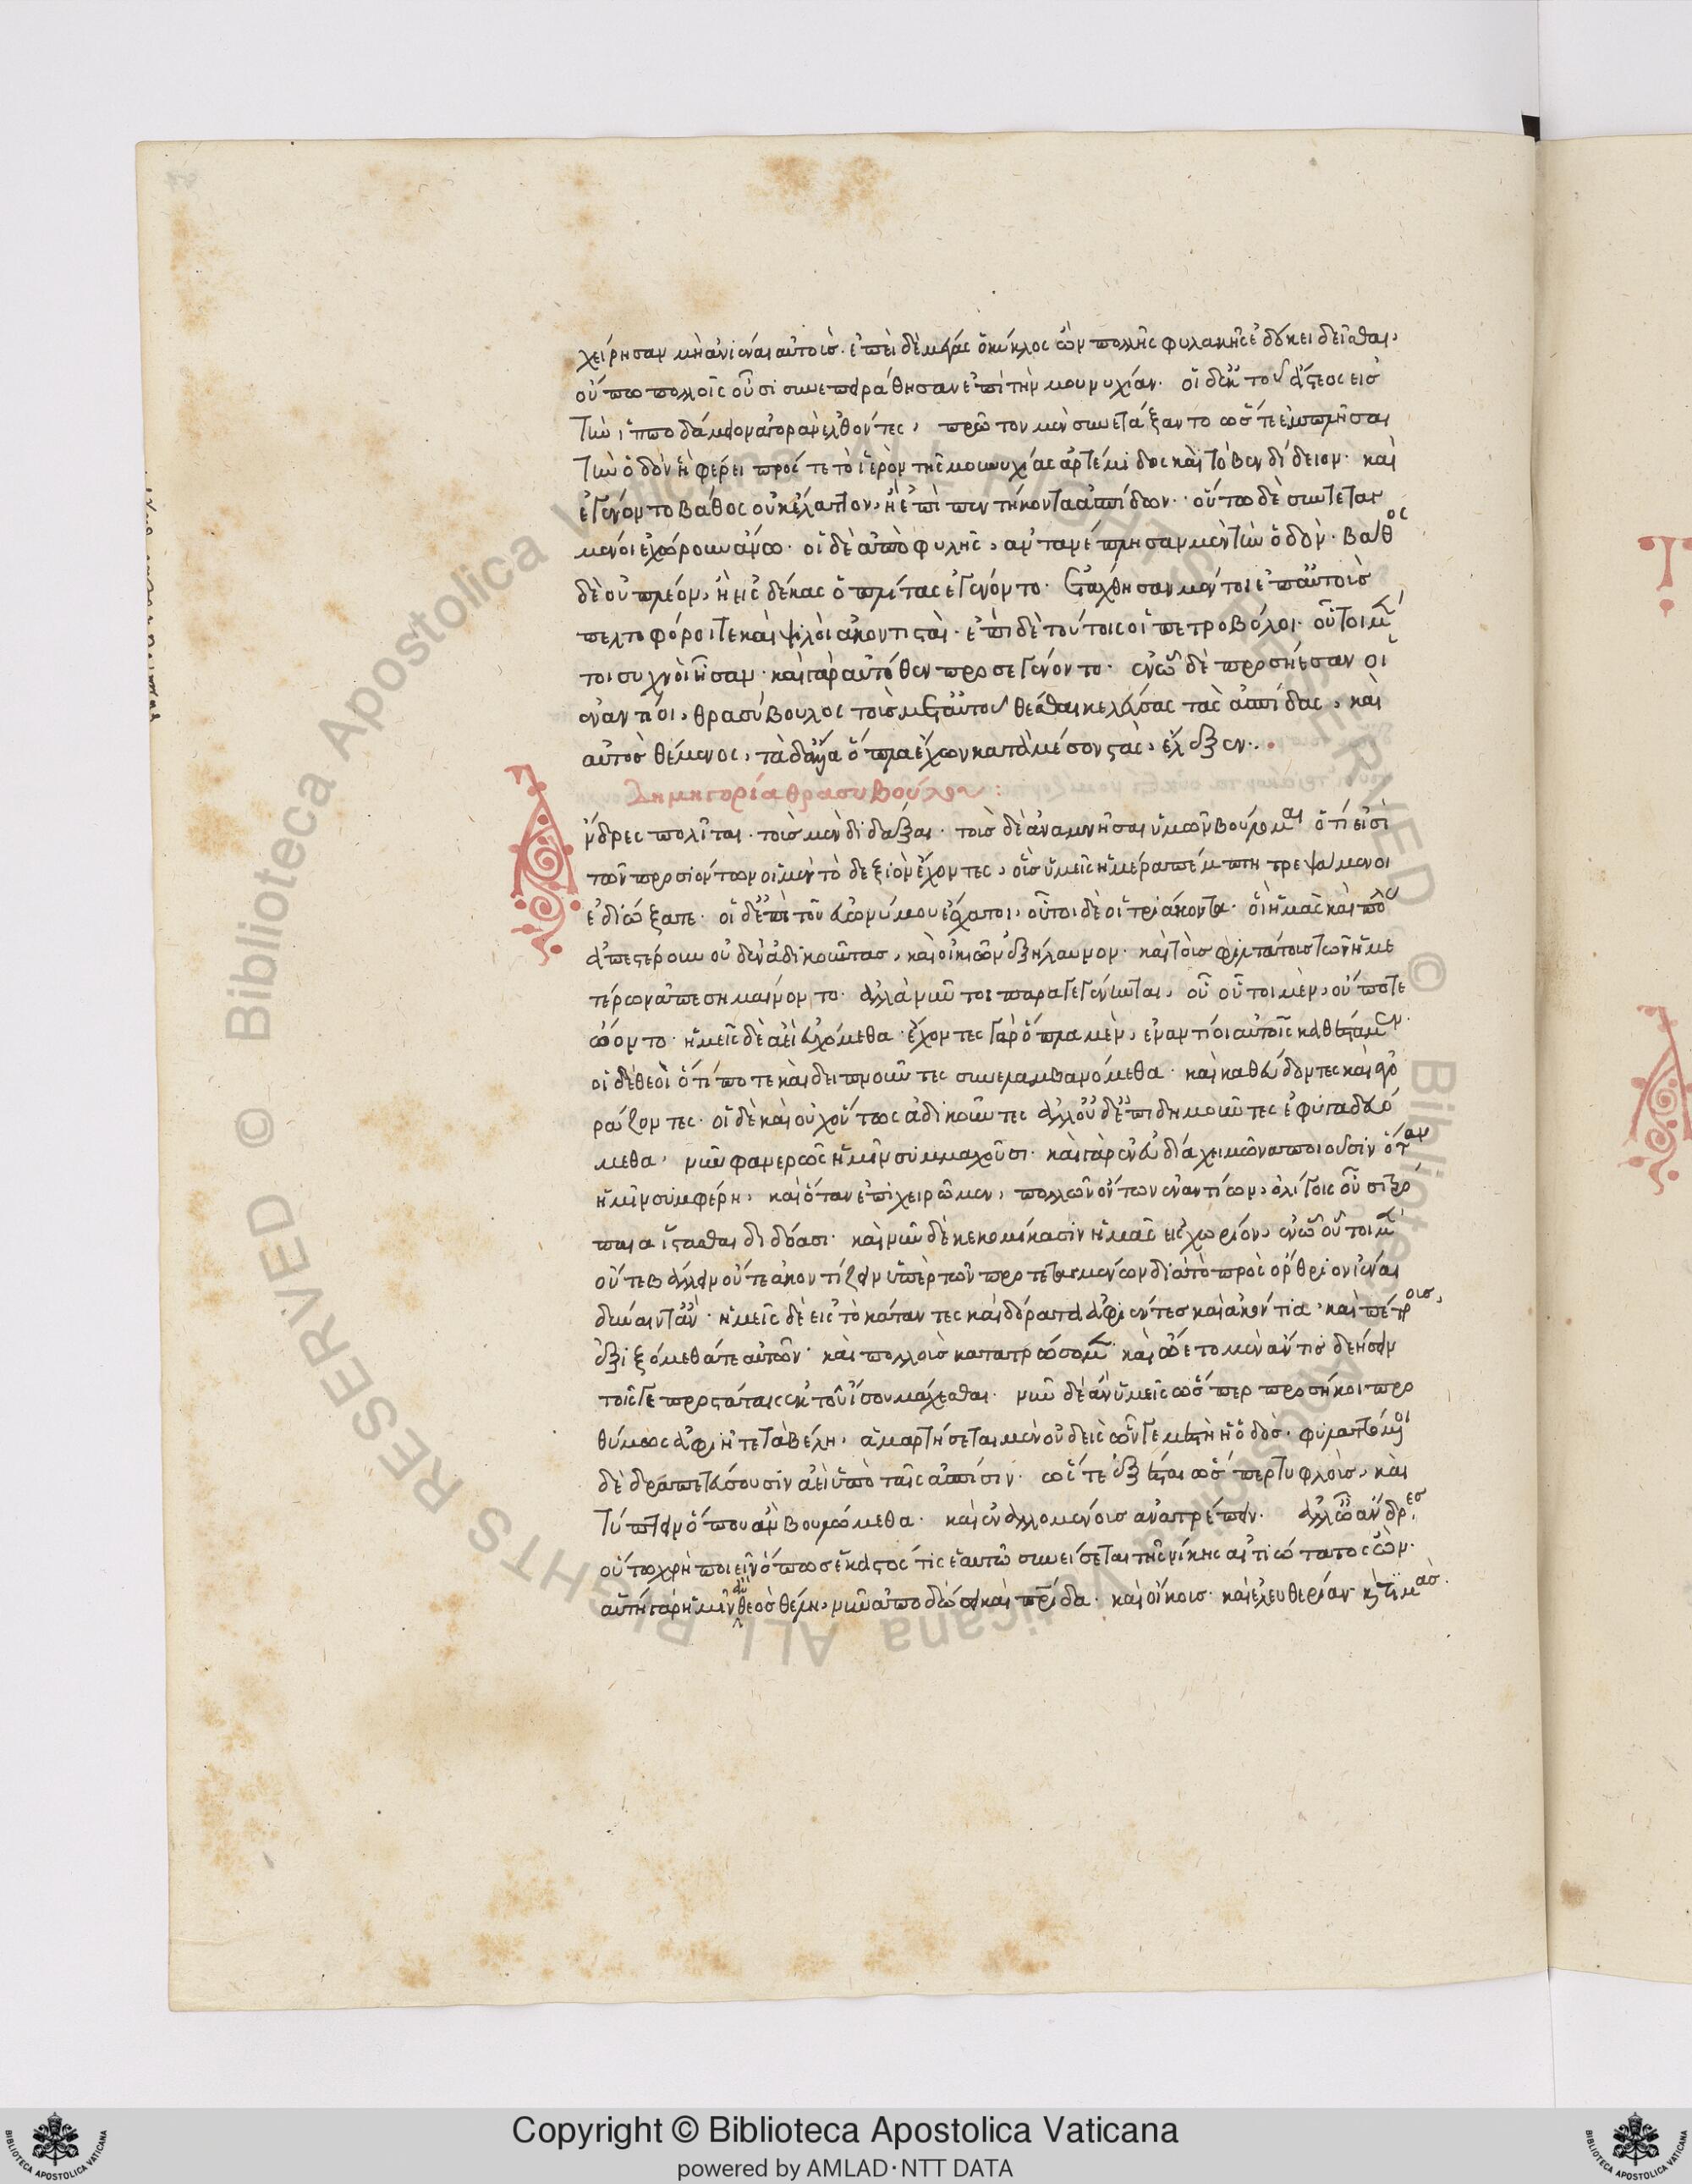 χείρησαν μὴ ἀνιέναι αὐτοῖς. ἐπεὶ δὲ μέγας ὁ κύκλος ὢν πολλῆς φυλακῆς ἐδόκει δεῖσθαι,
οὔπω πολλοῖς οὖσι συνεσπειράθησαν ἐπὶ τὴν μουνυχίαν. οἱ δ' ἐκ τοῦ ἄστεος εἰς
τὴν ἱπποδάμειον ἀγορὰν ἐλθόντες, πρῶτον μὲν συνετάξαντο ὥστε ἐμπλῆσαι
τὴν ὁδὸν ἣ φέρει πρός τε τὸ ἱερὸν τῆς μουνυχίας ἀρτέμιδος καὶ τὸ βενδίδειον. καὶ
ἐγένοντο βάθος οὐκ ἔλαττον, ἢ ἐπὶ πεντήκοντα ἀσπίδων. οὕτω δὲ συντεταγ
μένοι ἐχώρουν ἄνω. οἱ δὲ ἀπὸ φυλῆς, ἀντανέπλησαν μὲν τὴν ὁδόν. βάθος
δὲ οὐ πλέον, ἢ εἰς δέκα ὁπλίτας ἐγένοντο. ἐτάχθησαν μέντοι ἐπ' αὐτοῖς
πελτοφόροι τε καὶ ψιλοὶ ἀκοντισταὶ. ἐπὶ δὲ τούτοις οἱ πετροβόλοι. οὗτοι μέν
τοι συχνοὶ ἦσαν. καὶ γὰρ αὐτόθεν προσεγένοντο. ἐν ᾧ δὲ προσῄεσαν οἱ
ἐναντίοι, θρασύβουλος τοὺς μετ' αὐτοῦ θέσθαι κελεύσας τὰς ἀσπίδας, καὶ
αὐτὸς θέμενος, τὰ δ' ἄλλα ὅπλα ἔχων κατὰ μέσον στὰς, ἔλεξεν.
Δημηγορία θρασυβούλου:
Ἄνδρες πολῖται. τοὺς μὲν διδάξαι. τοὺς δὲ ἀναμνῆσαι ὑμῶν βούλομαι ὅτι εἰσὶ
τῶν προσιόντων οἱ μὲν τὸ δεξιὸν ἔχοντες, οὓς ὑμεῖς ἡμέρα πέμπτη τρεψάμενοι
ἐδιώξατε. οἱ δ' ἐπὶ τοῦ εὐωνύμου ἔσχατοι, οὗτοι δὲ οἱ τριάκοντα. οἳ ἡμᾶς καὶ πόλεως
ἀπεστέρουν οὐδὲν ἀδικοῦντας, καὶ οἰκιῶν ἐξήλαυνον. καὶ τοὺς φιλτάτους τῶν ἡμε
τέρων ἀπεσημαίνοντο. ἀλλὰ νῦν τοι παραγεγένηνται, οὗ οὗτοι μὲν, οὔποτε
ᾤοντο. ἡμεῖς δὲ ἀεὶ εὐχόμεθα. ἔχοντες γὰρ ὅπλα μὲν, ἐναντίοι αὐτοῖς καθέσταμεν.
οἱ δὲ θεοὶ ὅτι ποτὲ καὶ δειπνοῦντες συνελαμβανόμεθα. καὶ καθεύδοντες καὶ ἀγο
ράζοντες. οἱ δὲ καὶ οὐχ οὕπως ἀδικοῦντες ἀλλ' οὐδ' ἐπιδημοῦντες ἐφυγαδευό
μεθα. νῦν φανερῶς ἡμῖν συμμαχοῦσι. καὶ γὰρ ἐν εὐδίᾳ χειμῶνα ποιοῦσιν ὅταν
ἡμῖν συμφέρη. καὶ ὅταν ἐπιχειρῶμεν, πολλῶν ὄντων ἐναντίων, ὀλίγοις οὖσι τρό
παια ἵστασθαι διδόασι. καὶ νῦν δὲ κεκομίκασιν ἡμᾶς εἰς χωρίον, ἐν ᾧ οὗτοι μὲν
οὔτε βάλλειν οὔτε ἀκοντίζειν ὑπὲρ τῶν προτεταγμένων διὰ τὸ πρὸς ὄρθριον ἰέναι
δύναιντ' ἄν. ἡμεῖς δὲ εἰς τὸ κάταντες καὶ δόρατα ἀφιέντες καὶ ἀκόντια, καὶ πέτροις,
ἐξιξόμεθά τε αὐτῶν. καὶ πολλοὺς κατατρώσομεν. καὶ ᾤετο μὲν ἄν τις δεήσειν
τοῖς γε προστάταις ἐκ τοῦ ἴσου μάχεσθαι. νῦν δὲ ἂν ὑμεῖς ὥσπερ προσήκοι προ
θύμως ἀφιῆτε τὰ βέλη, ἁμαρτήσεται μὲν οὐδεὶς ὧν γε μεστὴ ἡ ὁδός. φυλαττόμενοι
δὲ δραπετεύσουσιν ἀεὶ ὑπὸ ταῖς ἀσπίσιν. ὥστε ἐξέσται ὥσπερ τυφλοὺς, καὶ
τύπτειν ὅπου ἂν βουλώμεθα. καὶ ἐναλλομένοις ἀνατρέπειν. ἀλλ' ὦ ἄνδρες.
οὕτω χρὴ ποιεῖν ὅπως ἕκαστός τις ἑαυτῷ συνείσεται τῆς νίκης αἰτιώτατος ὤν.
αὕτη γὰρ ἡμῖν ἂν θεὸς θέλη, νῦν ἀποδώσει καὶ πατρίδα. καὶ οἴκους. καὶ ἐλευθερίαν. καὶ τιμάς.